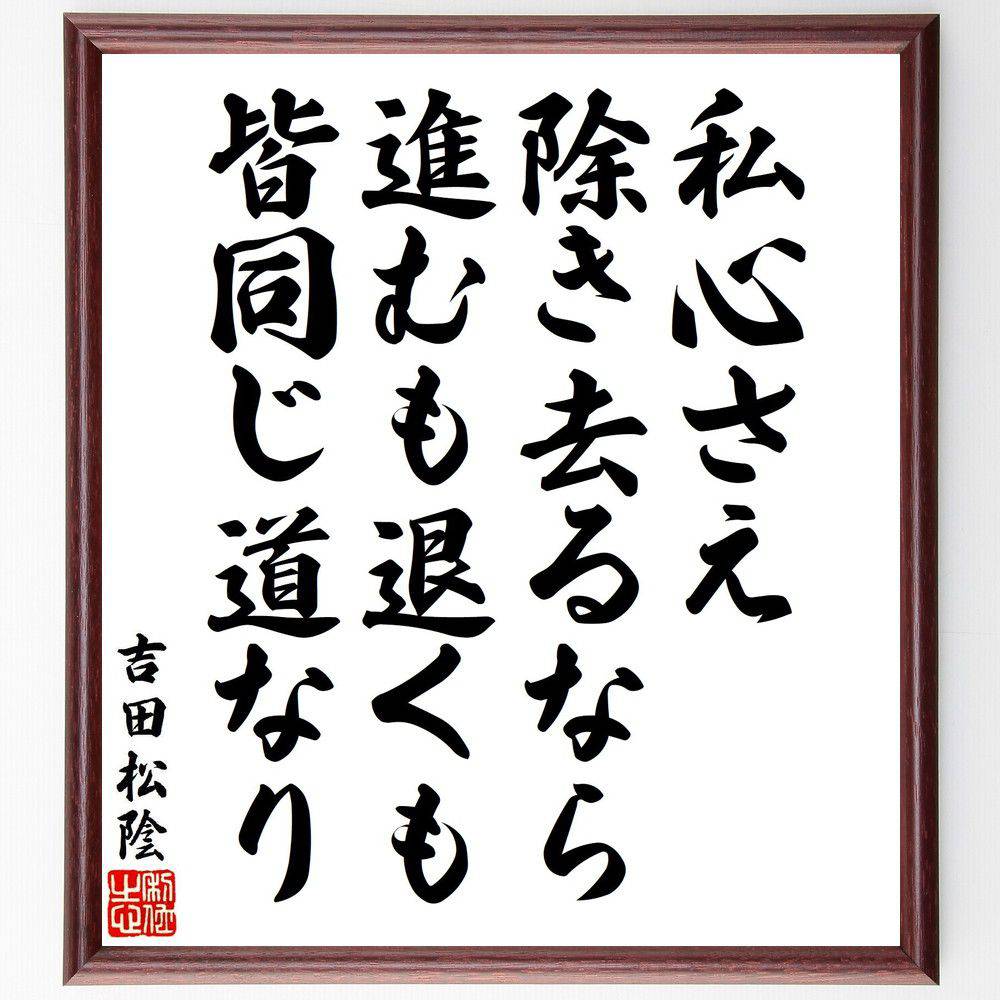 私心さえ
除き去るなら
進むも退くも
皆同じ道なり
吉田松陰